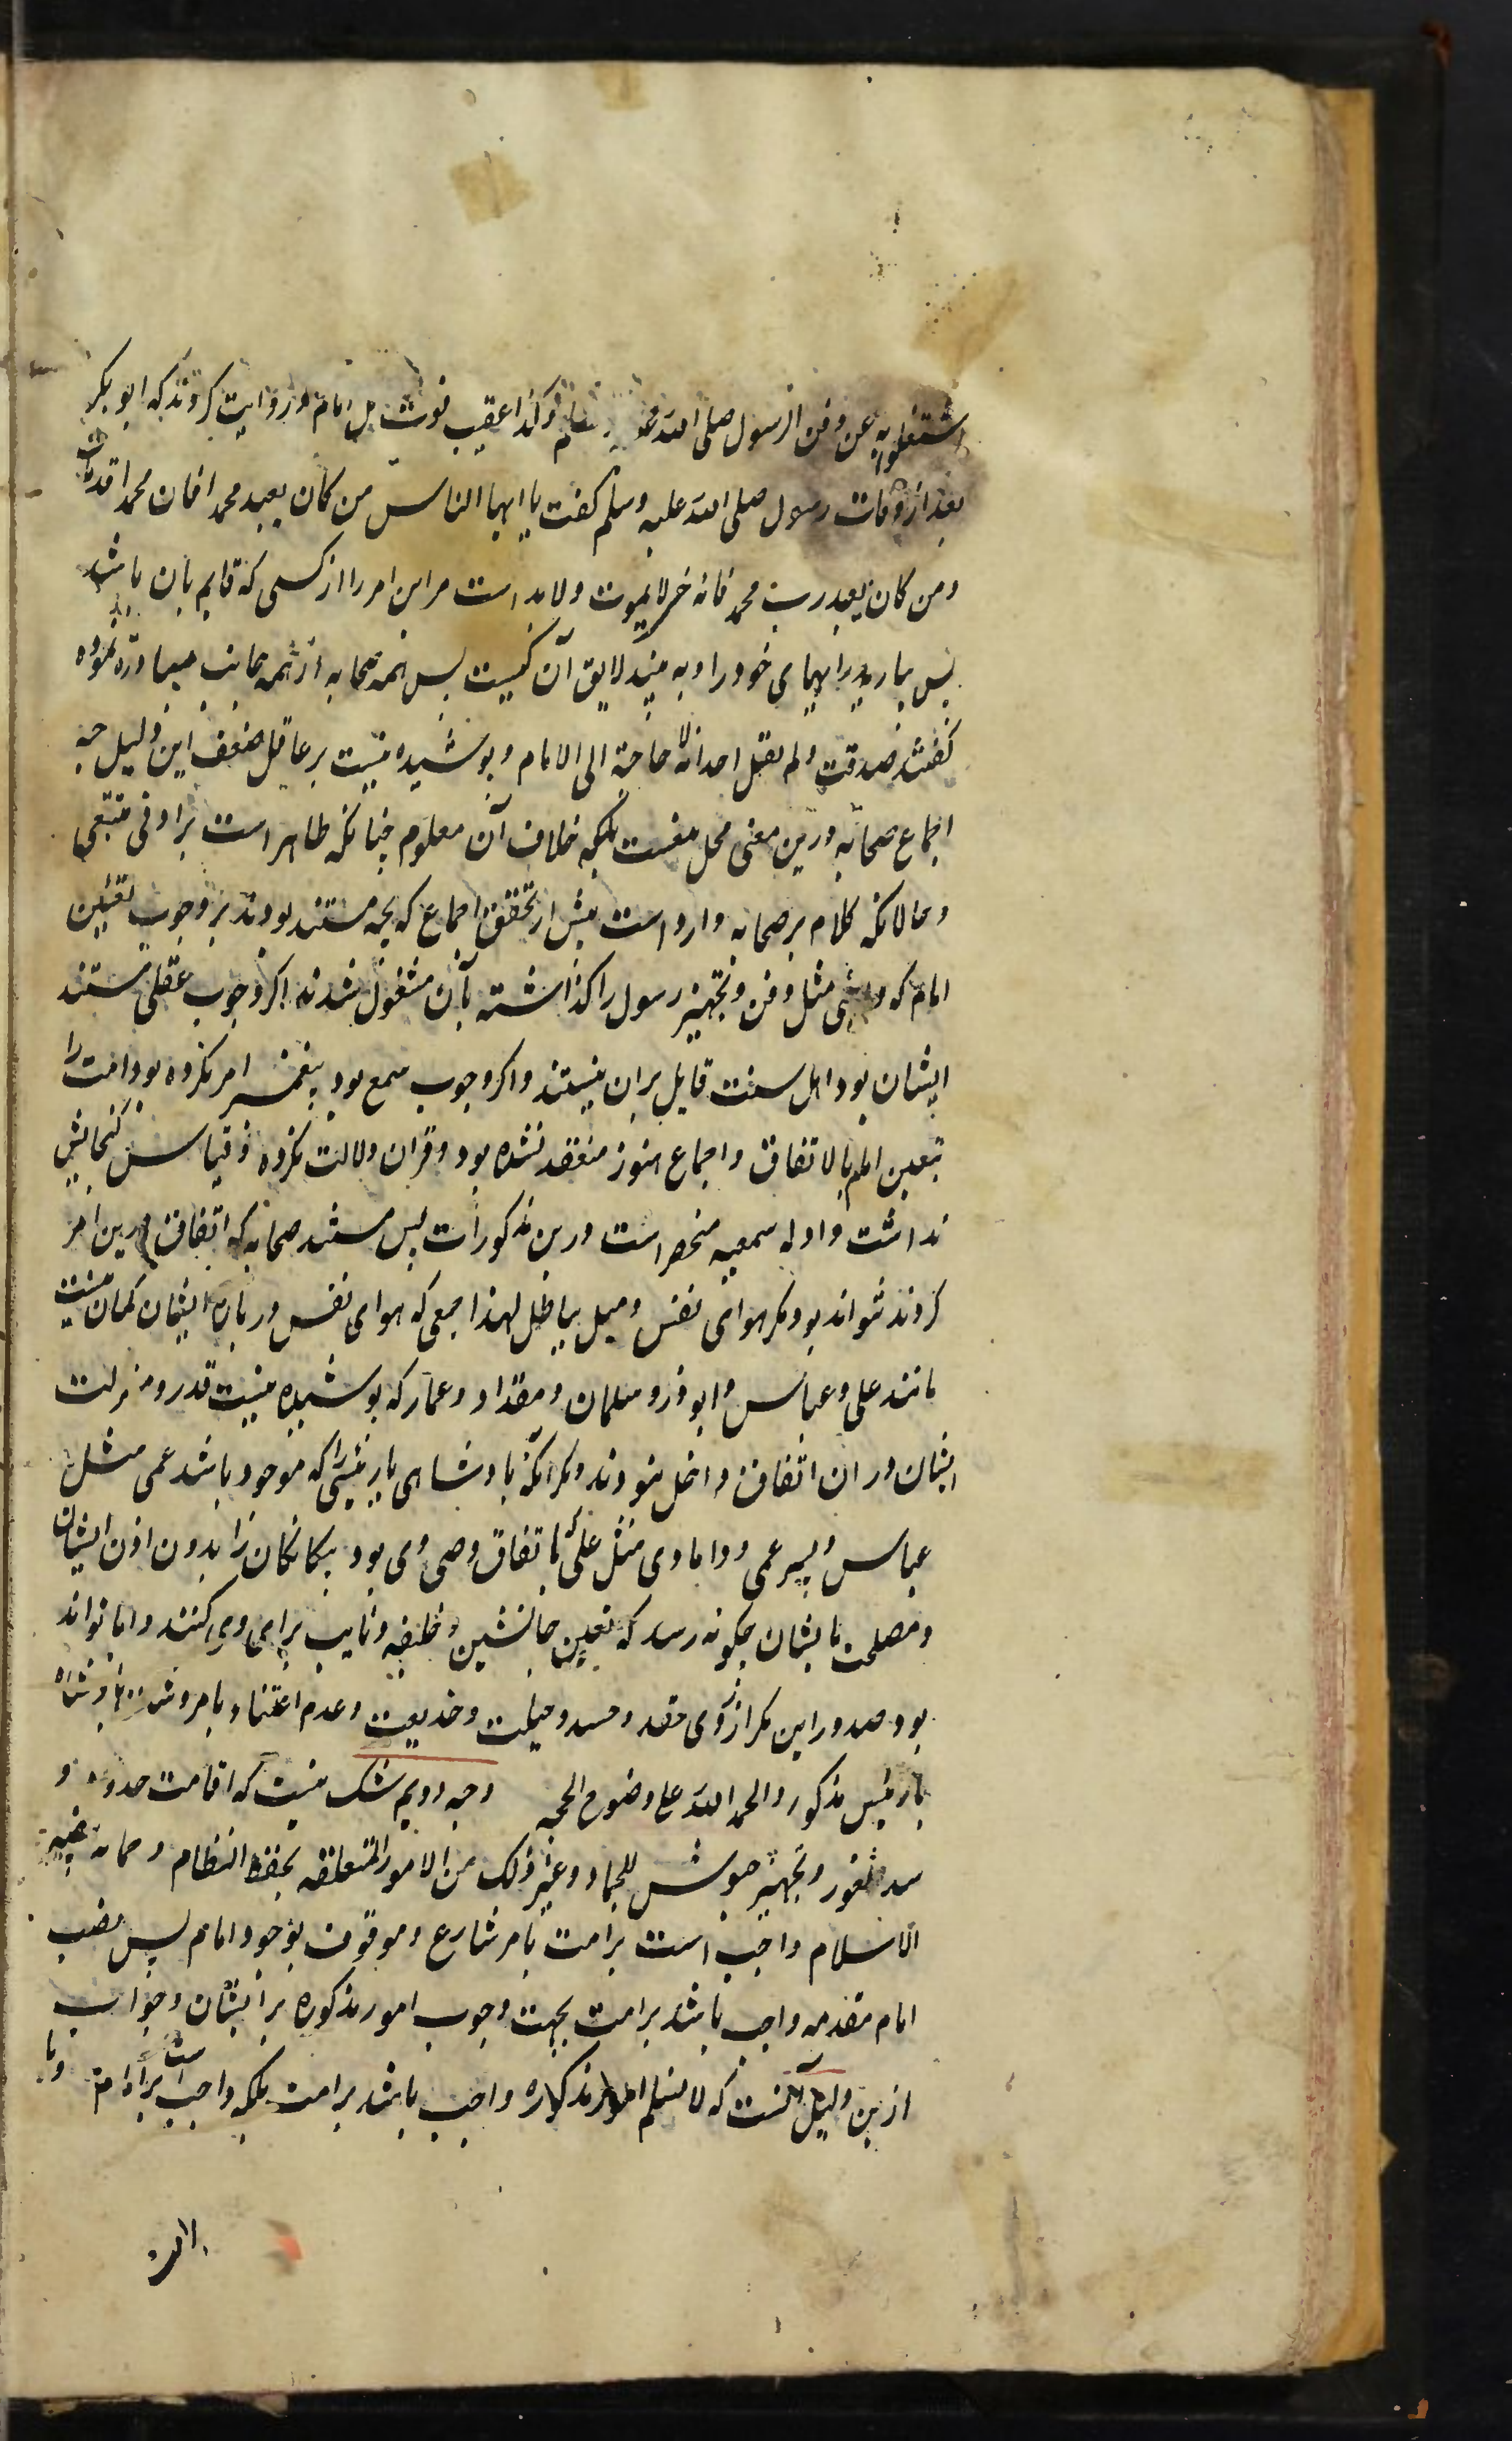 اشتغلوا به عن دفن الرسول صلی الله علیه و سلم و کذا عقیب فوت کل امام و روایت کردند که ابو بکر
بعد از وفات رسول صلی الله علیه وسلم گفت یا ایها الناس من کان یعبد محمدا فان محمدا قد مات
ومن کان یعبد رب محمد فانه حی لا یموت ولابد است مر این امر را از کسی که قایم بان باشد
پس بیارید رایهای خود را و به بینید لایق آن کیست پس همه صحابه از همه جانب مبادرت نموده
گفتند صدقت و لم یقل احد انه لا حاجة الی الامام و پوشیده نیست بر عاقل ضعف این دلیل چه
اجماع صحابه درین معنی محل منعست بلکه خلاف آن معلوم چنانکه ظاهر است بر ادنی متتبعی
و حالانکه کلام بر صحابه وارد است پیش از تحقق اجماع که بچه مستند بودند بر وجوب تعیین
امام که واجبی مثل دفن و تجهیز رسول را گذاشته بآن مشغول شدند اگر وجوب عقلی مستند
ایشان بود اهل سنت قایل بران نیستند و اگر وجوب سمع بود پیغمبر امر نکرده بود امت را
بتعیین امام بالاتفاق و اجماع هنوز منعقد نشده بود و قران دلالت نکرده و قیاس گنجایش
نداشت و ادله سمعیه منحصر است درین مذکورات پس مستند صحابه که اتفاق درین امر
کردند نتواند بود مگر هوای نفس و میل بباطل لهذا جمعی که هوای نفس در باره ایشان گمان نیست
مانند علی و عباس و ابوذر و سلمان و مقداد و عمار که پوشیده نیست قدر و منزلت
ایشان در ان اتفاق داخل نبودند و مگر آنکه پادشاهی یا رئیسی را که موجود باشد عمی مثل
عباس و پسر عمی و دامادی مثل علی که باتفاق وصی وی بود بیگانگان را بدون اذن ایشان
و مصلحت بایشان چگونه رسد که تعیین جانشین و خلیفه و نایب برای وی کنند و اما تواند
بود صدور این مگر از روی حقد و حسد و حیلت و خدیعت و عدم اعتناء بامر و شان پادشاه
یا رئیس مذکور والحمد الله علی وضوح الحجه وجه دویم شک نیست که اقامت حدود و
سد ثغور و تجهیز جیوش للجهاد و غیر ذلک من الامور المتعلقه بحفظ النظام و حمایة بیضة
الاسلام واجب است بر امت بامر شارع و موقوف بوجود امام پس نصب
امام مقدمه واجب باشد بر امت بجهت وجوب امور مذکوره بر ایشان و جواب
ازین دلیل آنست که لا نسلم امور مذکوره واجب باشد بر امت بلکه واجب است بر امام و یا